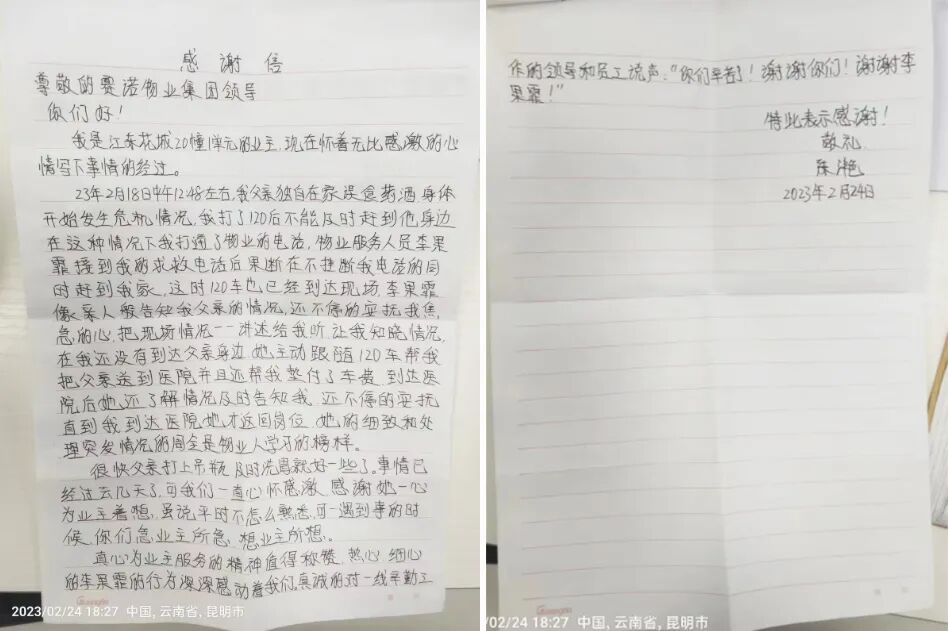 感谢信
尊敬的赛诺物业集团领导
你们好！
我是江东花城20幢1单元的业主，现在怀着无比感激的心
情写下事情的经过。
23年2月18日中午12:48左右，我父亲独自在家误食药酒，身体
开始发生危机情况，我打了120后不能及时赶到他身边
在这种情况下我打通了物业的电话，物业服务人员李果
霏接到我的求救电话后果断在不挂断我电话的同
时赶到我家，这时120车也已经到达现场，李果霏
像亲人般告知我父亲的情况，还不停的安抚我焦
急的心，把现场情况一一讲述给我听，让我知晓情况，
在我还没有到达父亲身边，她主动跟随120车帮我
把父亲送到医院并且还帮我垫付了车费，到达医
院后她还了解情况及时告知我，还不停的安抚
直到我到达医院她才返回岗位，她的细致和处
理突发情况的周全是物业人学习的榜样。
很快父亲打上吊瓶，及时洗胃就好一些了。事情已
经过去几天了，可我们一直心怀感激，感谢她一心
为业主着想，虽说平时不怎么熟悉，可一遇到事的时
候，你们急业主所急，想业主所想。
真心为业主服务的精神值得称赞，热心、细心
的李果霏的行为深深感动着我们，真诚的对一线辛勤工
2023/02/24 18:27 中国，云南省，昆明市
作的领导和员工说声：“你们辛苦了！谢谢你们！谢谢李
果霏！”
特此表示感谢！
敬礼
陈滟
2023年2月24日
/02/24 18:27 中国，云南省，昆明市